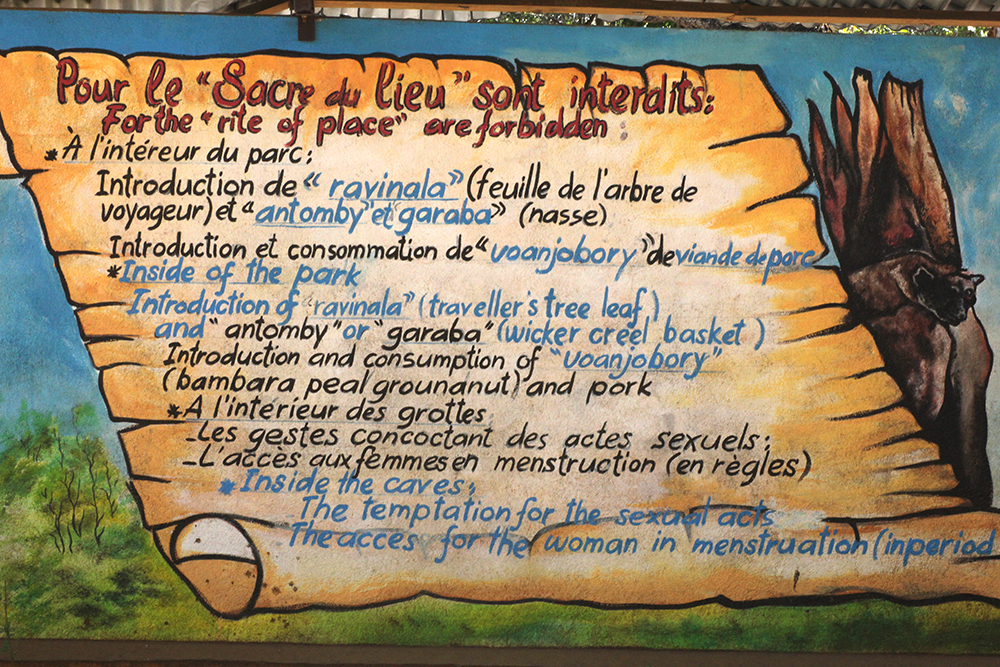 Pour le "Sacre du lieu" sont interdits:
For the "rite of place" are forbidden :
* À l'intéreur du parc:
Introduction de "ravinala" (feuille de l'arbre de
voyageur) et "antomby" et garaba" (nasse)
Introduction et consommation de "voanjobory" de viande de porc
* Inside of the park
Introduction of "ravinala" (traveller's tree leaf)
and "antomby" or "garaba" (wicker creel basket)
Introduction and consumption of "voanjobory"
(bambara peal grounanut) and pork
* A l'intérieur des grottes
- Les gestes concoctant des actes sexuels;
- L'accès aux femmes en menstruation (en règles)
* Inside the caves;
The temptation for the sexual acts
The acces for the woman in menstruation (in period